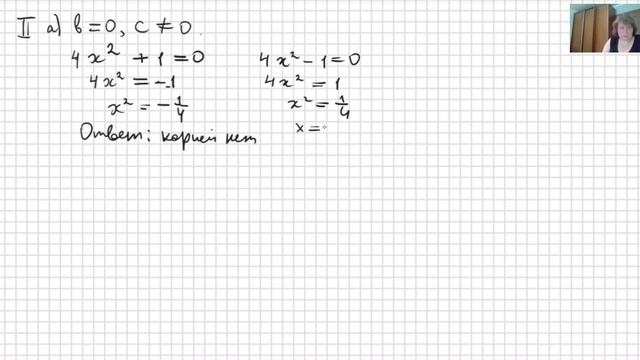 II a) b=0, c≠0.
4x² + 1 = 0
4x² = -1
x² = -1/4
Ответ: корней нет
4x² - 1 = 0
4x² = 1
x² = 1/4
x =